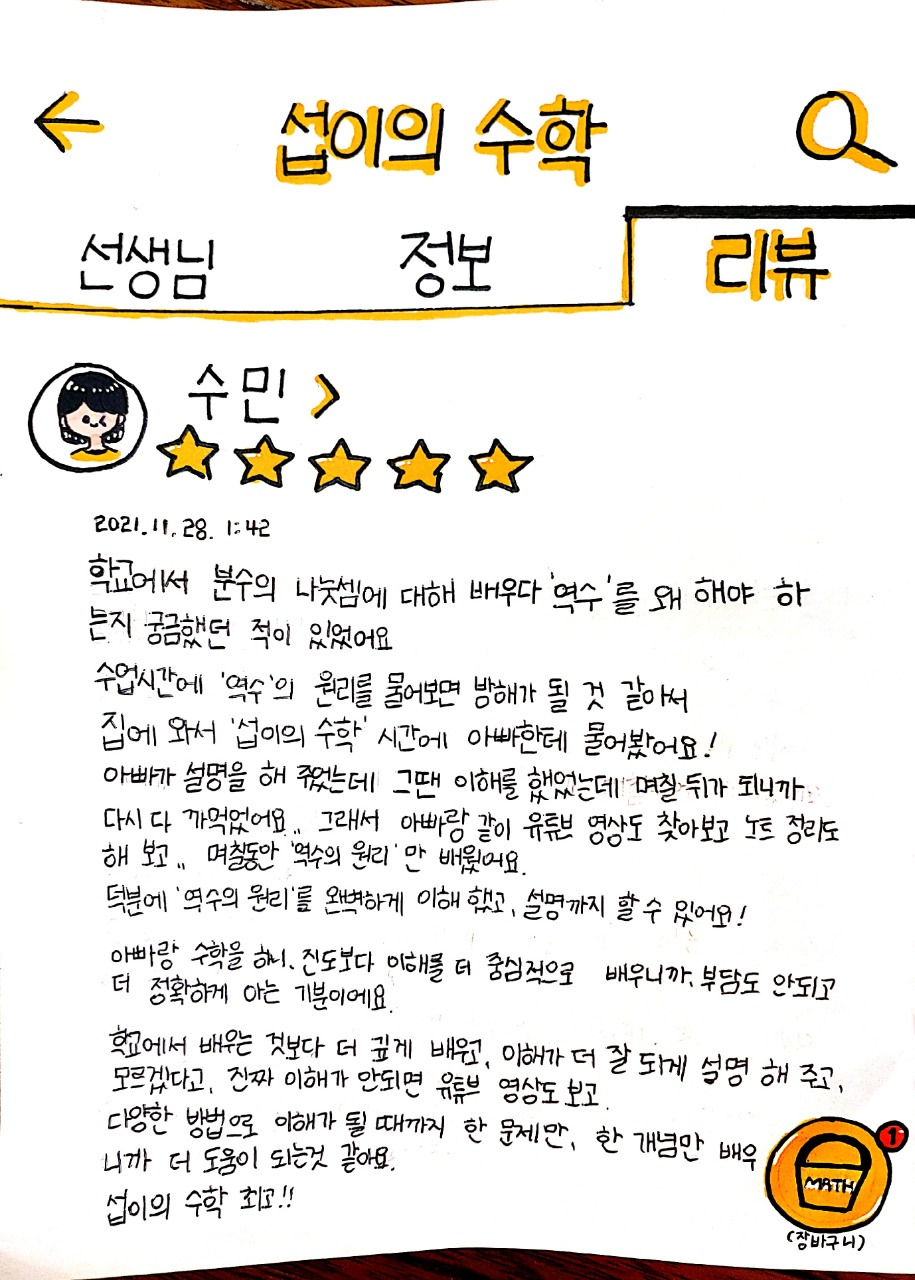 섭이의 수학
선생님 정보 리뷰
수민
2021.11.28. 1:42
학교에서 분수의 나눗셈에 대해 배우다 '역수'를 왜 해야 하
는지 궁금했던 적이 있었어요
수업시간에 '역수'의 원리를 물어보면 방해가 될 것 같아서
집에 와서 '섭이의 수학' 시간에 아빠한테 물어봤어요!
아빠가 설명을 해 주었는데 그땐 이해를 했었는데 며칠 뒤가 되니까
다시 다 까먹었어요.. 그래서 아빠랑 같이 유튜브 영상도 찾아보고 노트 정리도
해 보고.. 며칠동안 '역수의 원리'만 배웠어요.
덕분에 '역수의 원리'를 완벽하게 이해 했고, 설명까지 할 수 있어요!
아빠랑 수학을 하니, 진도보다 이해를 더 중심적으로 배우니까, 부담도 안되고
더 정확하게 아는 기분이에요.
학교에서 배우는 것보다 더 깊게 배우고, 이해가 더 잘 되게 설명 해 주고,
모르겠다고, 진짜 이해가 안되면 유튜브 영상도 보고
다양한 방법으로 이해가 될 때까지 한 문제만, 한 개념만 배우
니까 더 도움이 되는것 같아요.
섭이의 수학 최고!!
1
MATH
(장바구니)